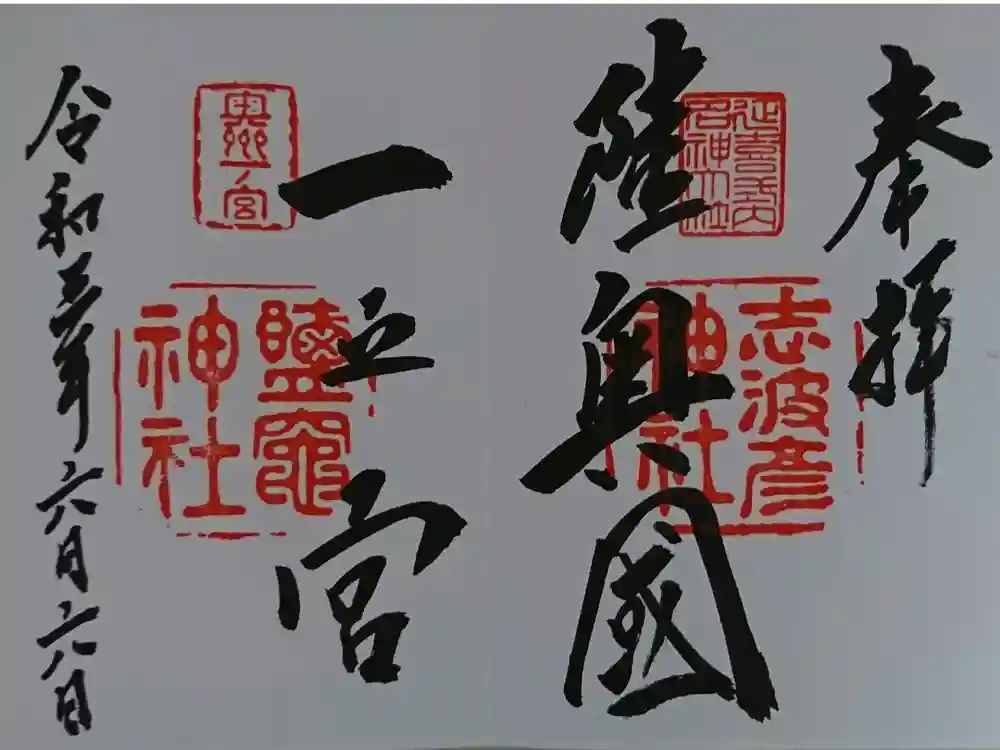 奉拝
延喜式内
名神大社
陸奥國
志波彦
神社
一之宮
奥州
一ノ宮
鹽竈
神社
令和三年六月六日